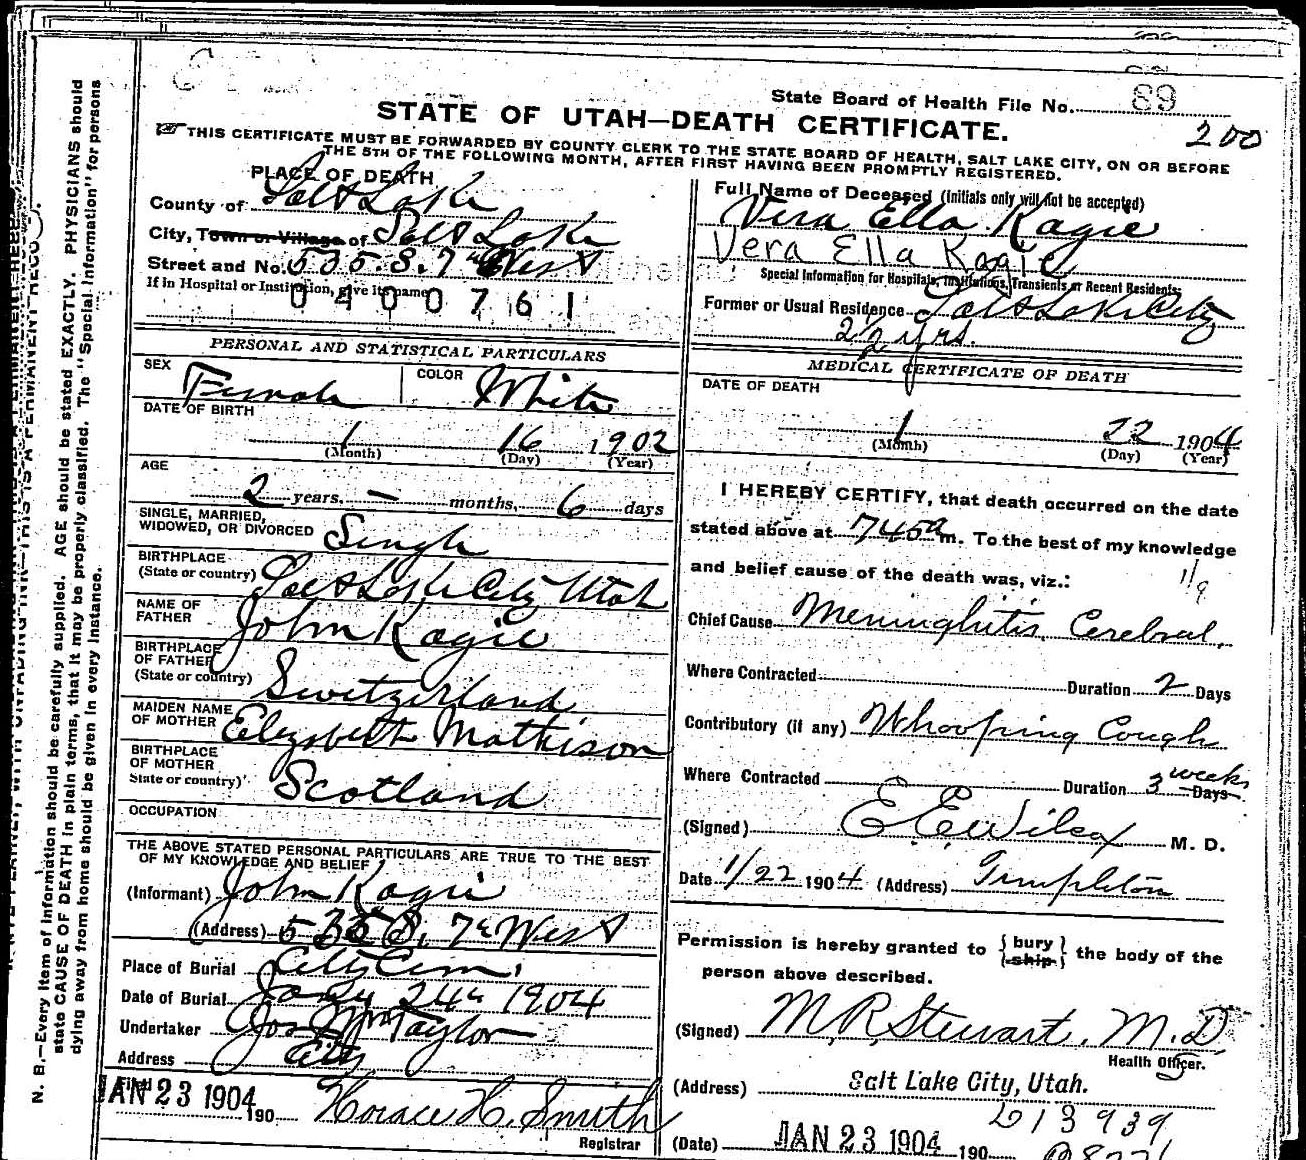 State Board of Health File No. 89
200
STATE OF UTAH—DEATH CERTIFICATE.
THIS CERTIFICATE MUST BE FORWARDED BY COUNTY CLERK TO THE STATE BOARD OF HEALTH, SALT LAKE CITY, ON OR BEFORE
THE 5TH OF THE FOLLOWING MONTH, AFTER FIRST HAVING BEEN PROMPTLY REGISTERED.
PLACE OF DEATH
County of Salt Lake
City, Town or Village of Salt Lake
Street and No. 535. S. 7th West
If in Hospital or Institution, give its name
0400761
PERSONAL AND STATISTICAL PARTICULARS
SEX Female COLOR White
DATE OF BIRTH
1 16 1902
(Month) (Day) (Year)
AGE
2 years, — months, 6 days
SINGLE, MARRIED,
WIDOWED, OR DIVORCED Single
BIRTHPLACE
(State or country) Salt Lake City Utah
NAME OF
FATHER John Kagie
BIRTHPLACE
OF FATHER
(State or country) Switzerland
MAIDEN NAME
OF MOTHER Elizabeth Mathison
BIRTHPLACE
OF MOTHER
State or country) Scotland
OCCUPATION
THE ABOVE STATED PERSONAL PARTICULARS ARE TRUE TO THE BEST
OF MY KNOWLEDGE AND BELIEF
(Informant) John Kagie
(Address) 535 S. 7th West
Place of Burial City Cem.
Date of Burial Jany 24th 1904
Undertaker Jos Wm Taylor
Address City
Filed JAN 23 1904 190 Horace H. Smith
Registrar
Full Name of Deceased (Initials only will not be accepted)
Vera Ella Kagie
Vera Ella Kagie
Special Information for Hospitals, Institutions, Transients or Recent Residents:
Former or Usual Residence Salt Lake City
2 1/2 yrs.
MEDICAL CERTIFICATE OF DEATH
DATE OF DEATH
1 22 1904
(Month) (Day) (Year)
I HEREBY CERTIFY, that death occurred on the date
stated above at 745 a m. To the best of my knowledge
and belief cause of the death was, viz.:
Chief Cause Meninghitis Cerebral,
Where Contracted Duration 2 Days
Contributory (if any) Whooping Cough
Where Contracted Duration 3 weeks Days
(Signed) E. E. Wilcox M. D.
Date 1/22 1904 (Address) Templeton
Permission is hereby granted to { bury / ship } the body of the
person above described.
(Signed) M. R. Stewart, M.D.
Health Officer.
(Address) Salt Lake City, Utah.
(Date) JAN 23 1904 190
N. B.—Every item of information should be carefully supplied. AGE should be stated EXACTLY. PHYSICIANS should
state CAUSE OF DEATH in plain terms, that it may be properly classified. The "Special Information" for persons
dying away from home should be given in every instance.